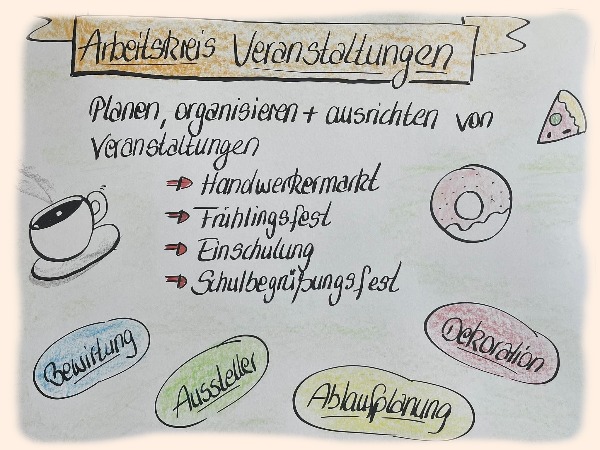 Arbeitskreis Veranstaltungen
Planen, organisieren + ausrichten von
Veranstaltungen
Handwerkermarkt
Frühlingsfest
Einschulung
Schulbegrüßungsfest
Bewirtung
Aussteller
Ablaufplanung
Dekoration